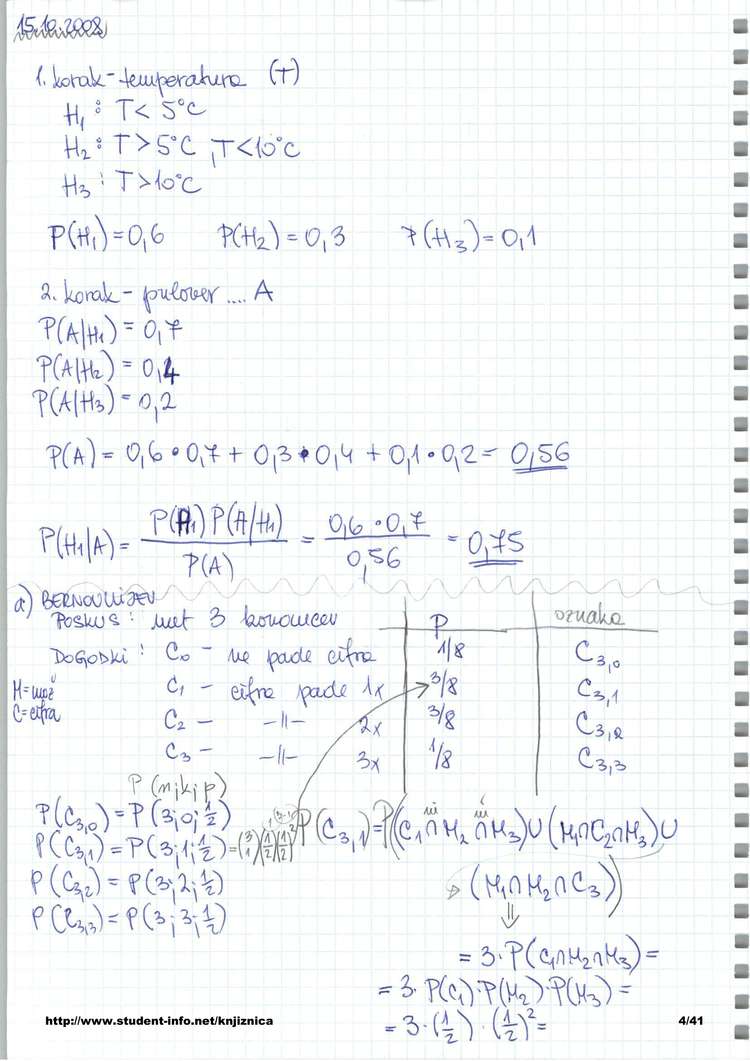 15.10.2008
1. korak - temperatura (T)
H₁ : T < 5°C
H₂ : T > 5°C , T < 10°C
H₃ : T > 10°C
P(H₁) = 0,6 P(H₂) = 0,3 P(H₃) = 0,1
2. korak - pulover .... A
P(A/H₁) = 0,7
P(A/H₂) = 0,4
P(A/H₃) = 0,2
P(A) = 0,6 • 0,7 + 0,3 • 0,4 + 0,1 • 0,2 = 0,56
P(H₁/A) = P(H₁) P(A/H₁) / P(A) = 0,6 • 0,7 / 0,56 = 0,75
a) BERNOULLIJEV
POSKUS : met 3 kovancev P oznaka
DOGODKI : C₀ - ne pade cifra 1/8 C₃,₀
M = mož C₁ - cifra pade 1x 3/8 C₃,₁
C = cifra C₂ - -||- 2x 3/8 C₃,₂
C₃ - -||- 3x 1/8 C₃,₃
P(n;k;p)
P(C₃,₀) = P(3;0;1/2)
P(C₃,₁) = P(3;1;1/2) = (3 1)(1/2)¹(1/2)² P(C₃,₁) = P((C₁∩M₂∩M₃)∪(M₁∩C₂∩M₃)∪
P(C₃,₂) = P(3;2;1/2) (M₁∩M₂∩C₃))
P(C₃,₃) = P(3;3;1/2) ⇓
= 3 • P(C₁∩M₂∩M₃) =
= 3 • P(C₁) • P(M₂) • P(M₃) =
= 3 • (1/2) • (1/2)² =
http://www.student-info.net/knjiznica 4/41